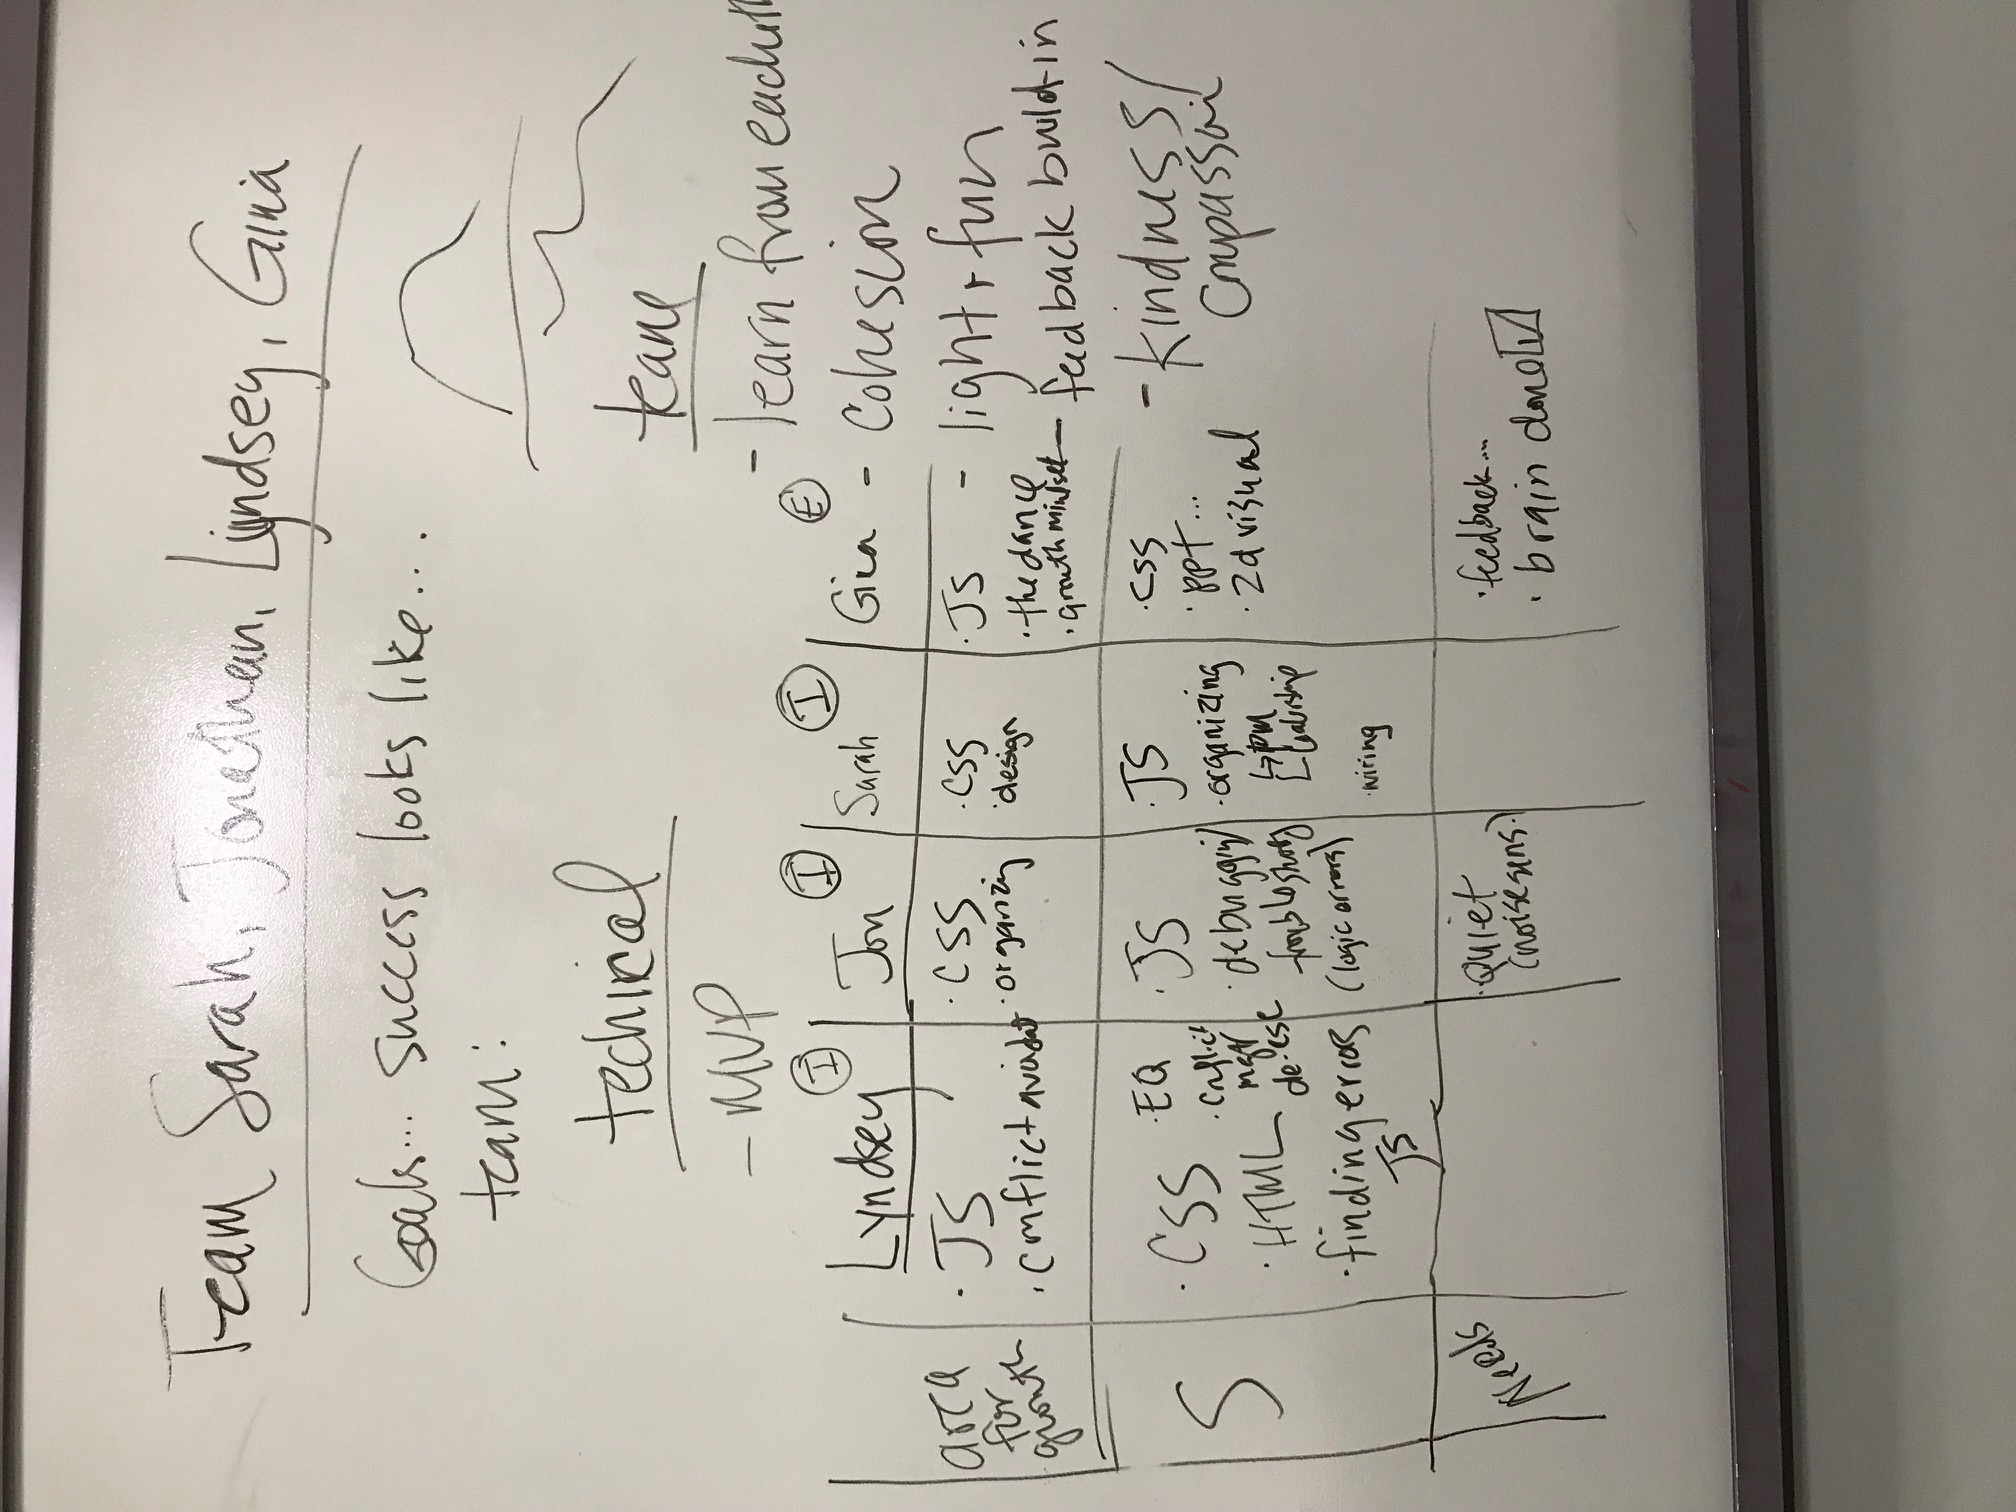 Team Sarah, Jonathan, Lyndsey, Gina
Goals... success looks like...
team:
techincal
- MVP
team
- learn from each oth
- cohesion
- light + fun
- feedback build-in
- kindness/
compassion
I
I
I
E
Lyndsey
Jon
Sarah
Gina
area
for
growth
· JS
· conflict avoidat
· CSS
· organizing
· CSS
· design
· JS
· the dance
· growth mindset
S
· CSS
· HTML
· finding errors
JS
· EQ
· conflict
mgt
de-esc
· JS
· debugging/
troubleshooting
(logic errors)
· JS
· organizing
↳ pm
↳ leadership
· CSS
· ppt...
· 2d visual
Needs
· Quiet
(noise sens.)
· feedback...
· brain done ☑